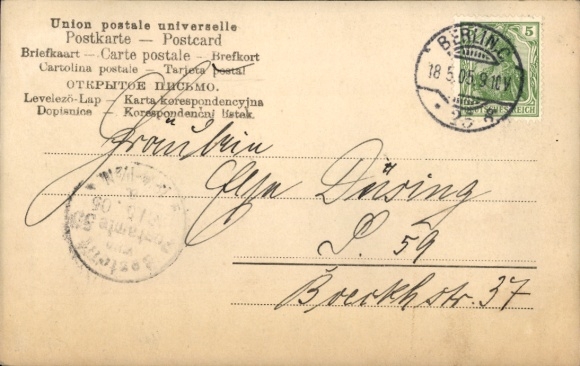 Union postale universelle
Postkarte — Postcard
Briefkaart — Carte postale — Brefkort
Cartolina postale — Tarjeta postal
ОТКРЫТОЕ ПИСЬМО.
Levelező-Lap — Karta korespondencyjna
Dopisnice — Korespondenční lístek.
BERLIN, C.
18.5.05. 9-10V.
* 25 g.
5
DEUTSCHES REICH
Fräulein
Elsa Düsing
S. 59
Boeckhstr. 37
Bestellt
vom
Postamte 59
05